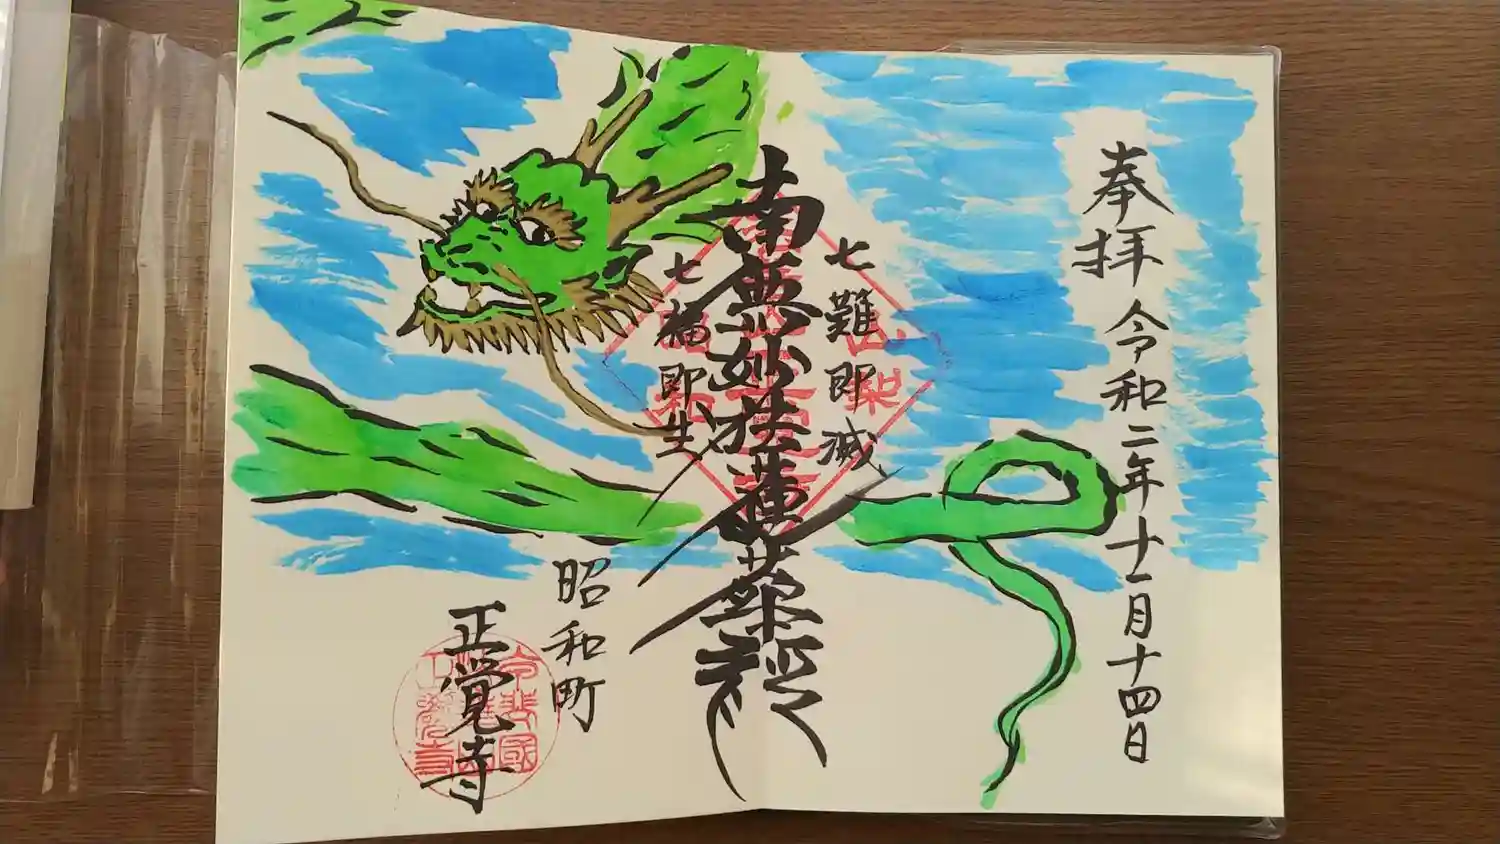 奉拝 令和二年十一月十四日
七難即滅
南無妙法蓮華経
七福即生
昭和町
正覺寺